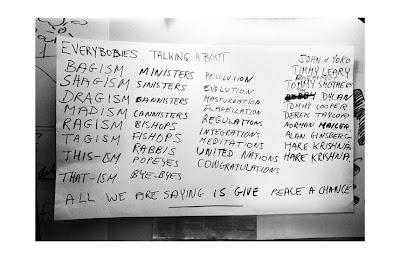 EVERYBOBIES TALKING ABOUT
BAGISM
SHAGISM
DRAGISM
MADISM
RAGISM
TAGISM
THIS-ISM
THAT-ISM
MINISTERS
SINISTERS
BANNISTERS
CANNISTERS
BISHOPS
FISHOPS
RABBIS
POPEYES
BYE-BYES
REVOLUTION
EVOLUTION
MASTURBATION
FLAGELLATION
REGULATIONS
INTEGRATIONS
MEDITATIONS
UNITED NATIONS
CONGRATULATIONS
JOHN + YOKO
TIMMY LEARY
TOMMY SMOTHERS
DYLAN
TOMMY COOPER
DEREK TAYLOR
NORMAN MAILER
ALAN GINSBERG
HARE KRISHNA
HARE KRISHNA
ALL WE ARE SAYING IS GIVE PEACE A CHANCE